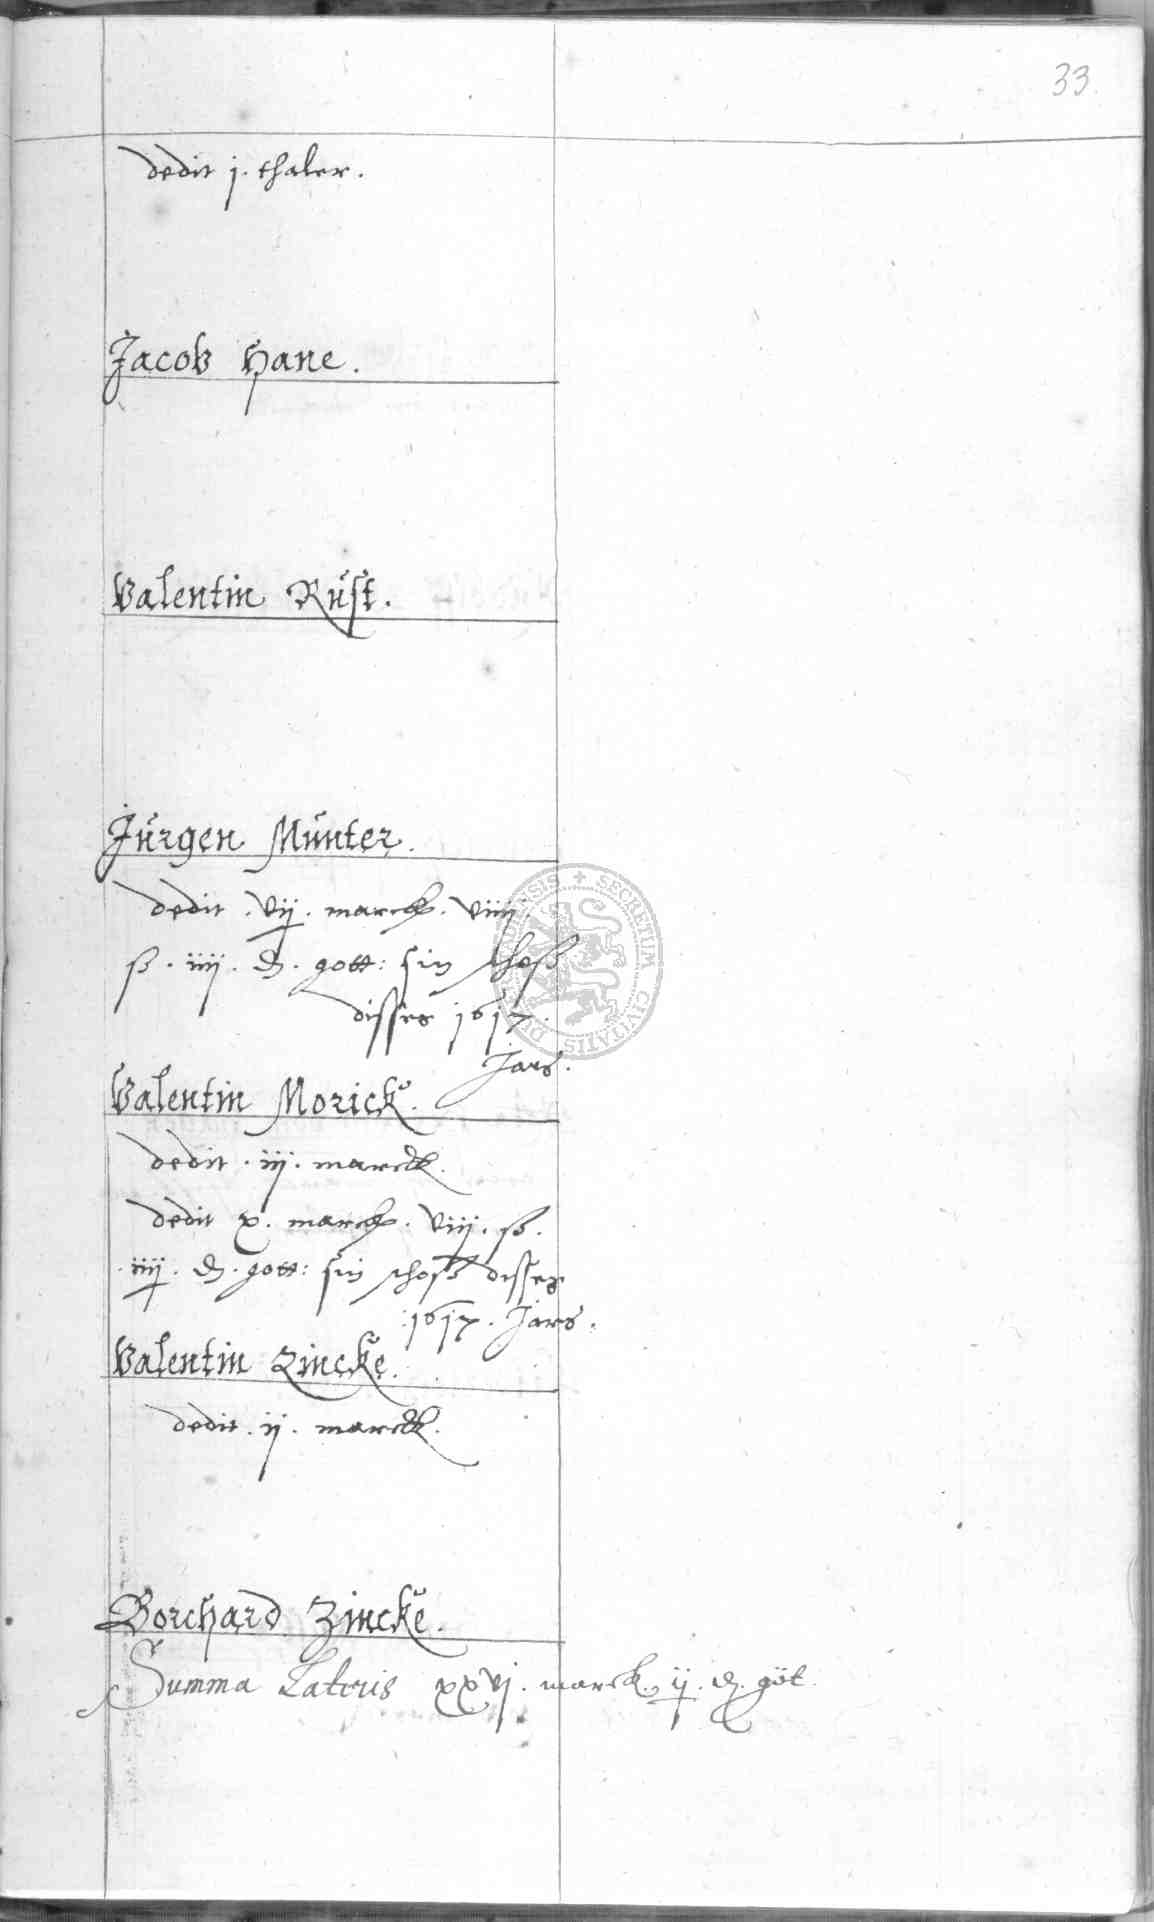 33
dedit j. thaler.
Jacob Hane.
Valentin Rust.
Jürgen Münter.
dedit . vij . marck . viiij
ß . iiij . ₰ . gott: sin schoß
disses 1617.
Jars.
Valentin Morick.
dedit . iij . marck.
dedit x. marck . viiij . ß.
. iiij . ₰ . gott: sin schoß disses
. 1617 . Jars .
Valentin Zincke.
dedit . ij . marck.
Borchard Zincke.
Summa Lateris xxvj . marck . ij . ₰ . gött.
SECRETUM CIVITATIS